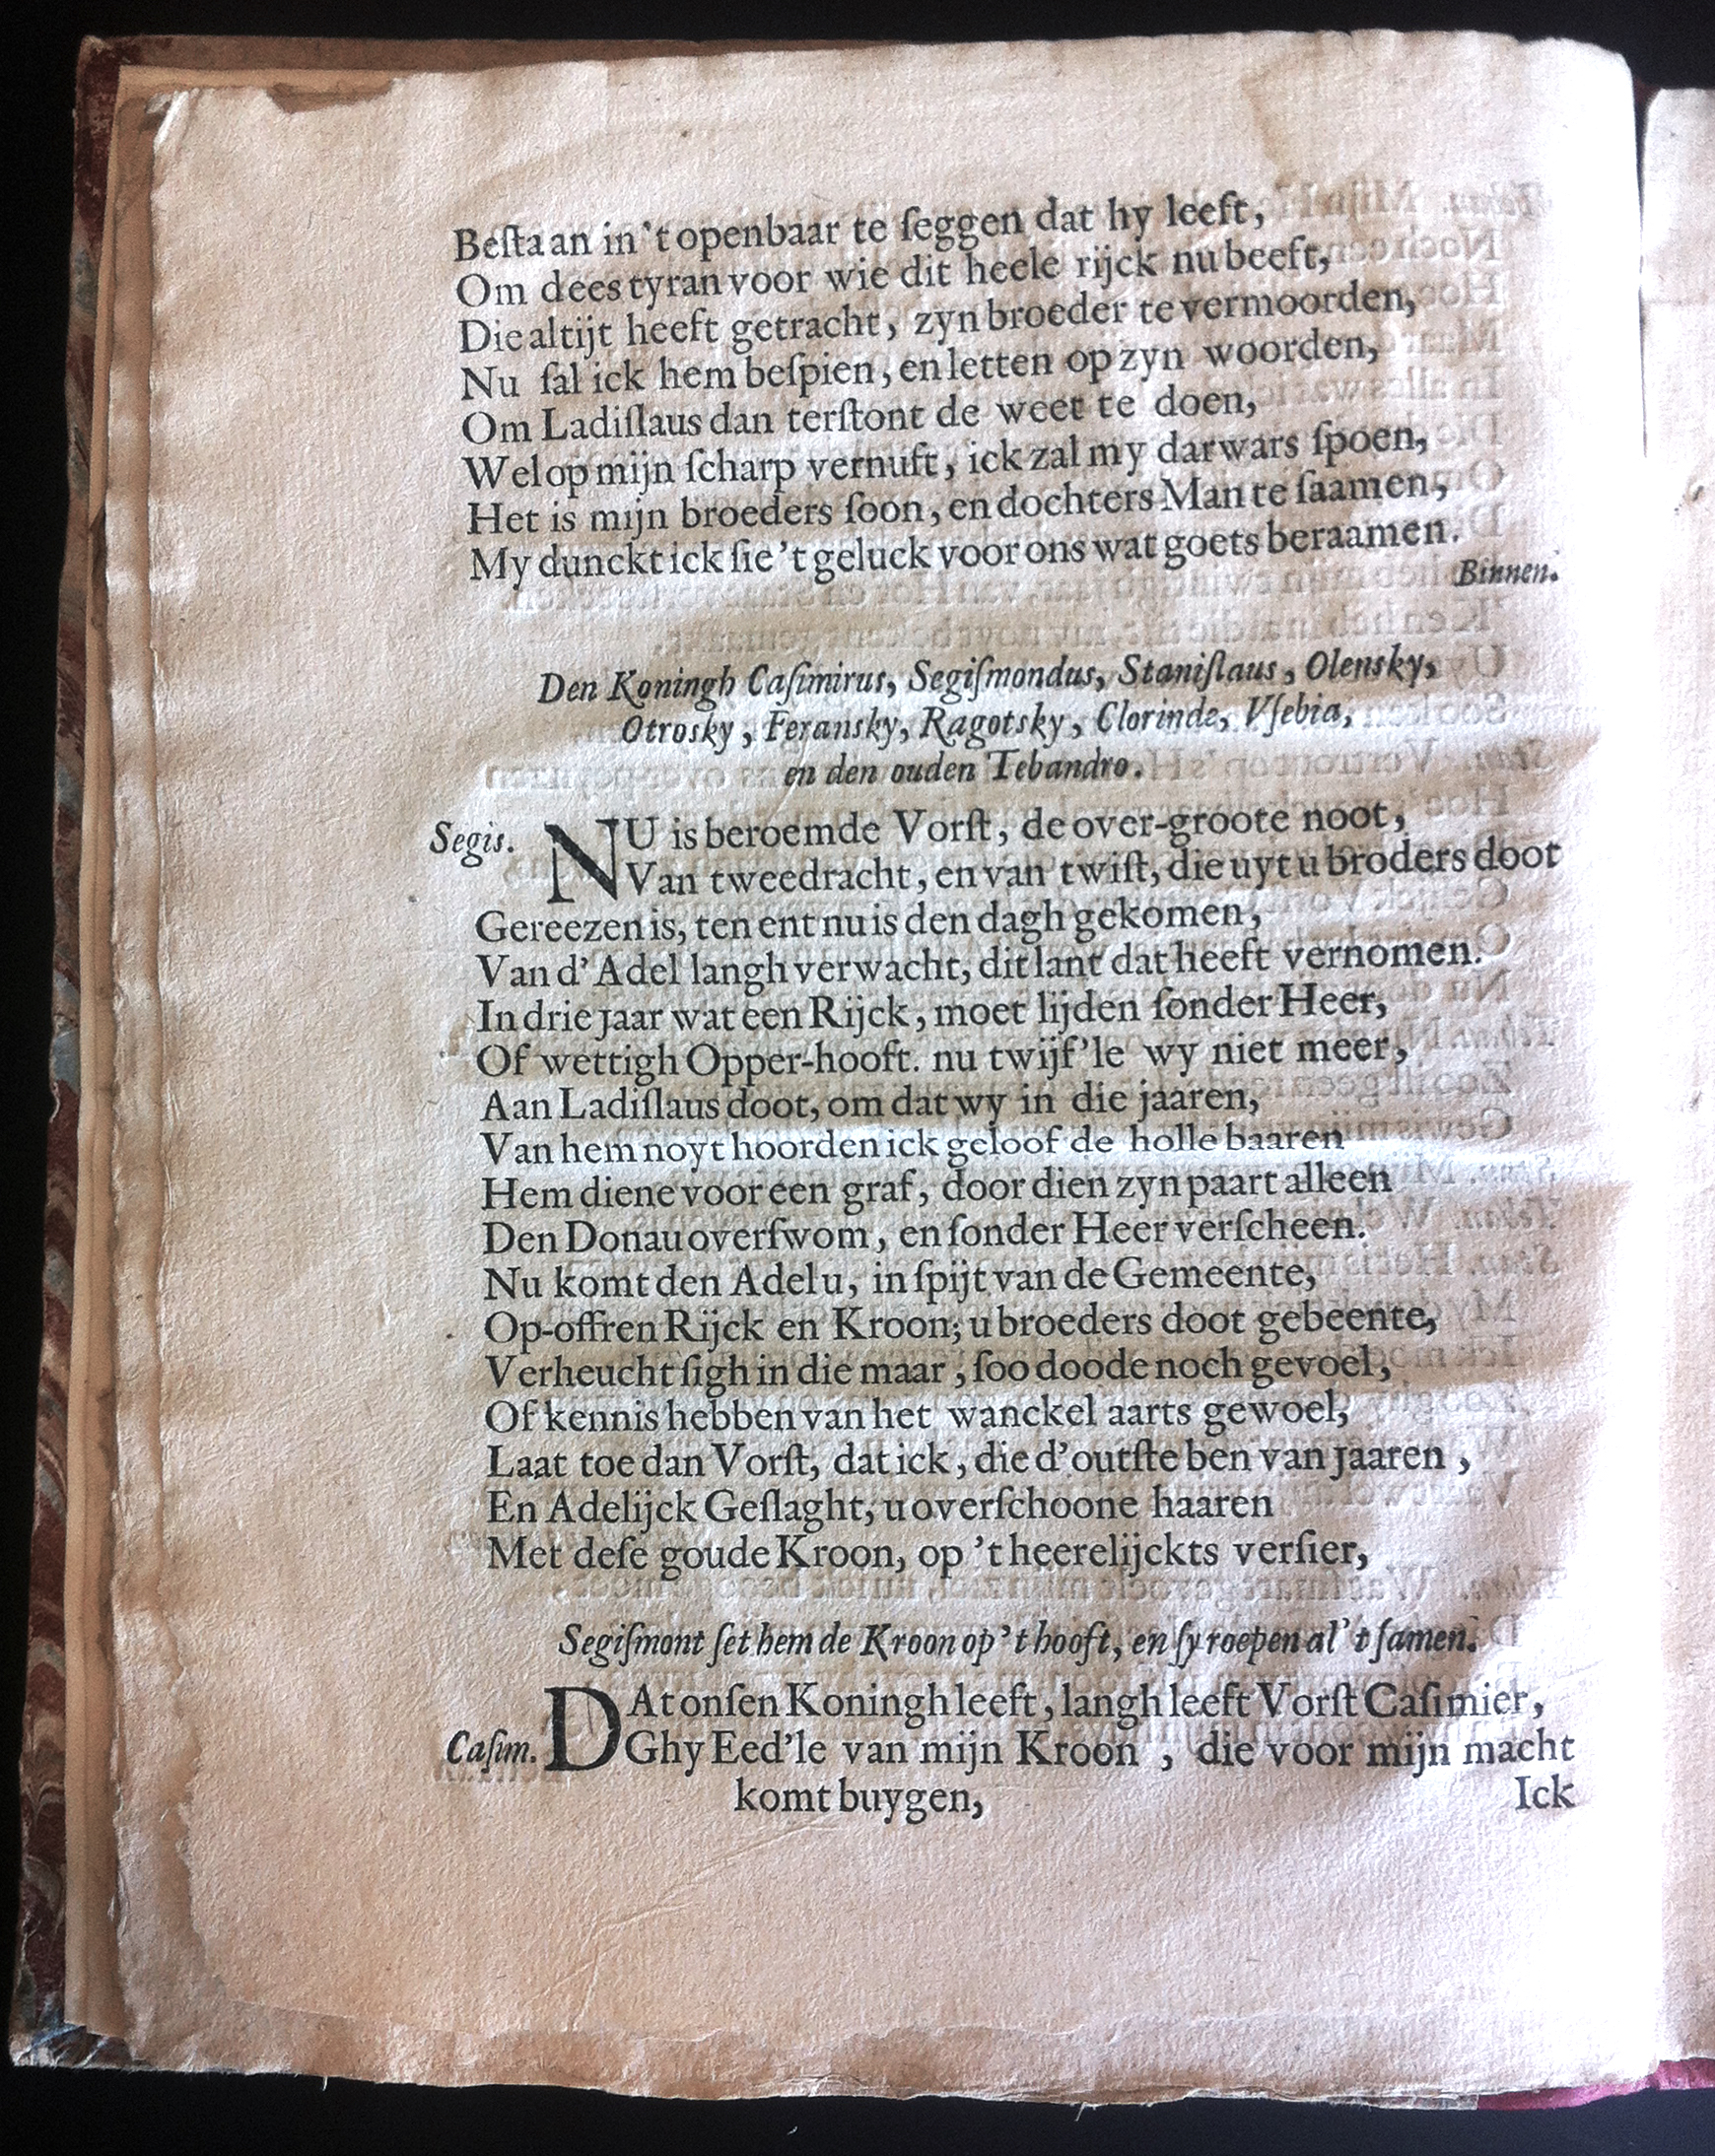 Beſtaan in 't openbaar te ſeggen dat hy leeft,
Om dees tyran voor wie dit heele rijck nu beeft,
Die altijt heeft getracht, zyn broeder te vermoorden,
Nu ſal ick hem beſpien, en letten op zyn woorden,
Om Ladiſlaus dan terſtont de weet te doen,
Wel op mijn ſcharp vernuft, ick zal my darwars ſpoen,
Het is mijn broeders ſoon, en dochters Man te ſaamen,
My dunckt ick ſie 't geluck voor ons wat goets beraamen.
Binnen.
Den Koningh Caſimirus, Segiſmondus, Staniſlaus, Olensky,
Otrosky, Feransky, Ragotsky, Clorinde, Vſebia,
en den ouden Tebandro.
Segis. NU is beroemde Vorſt, de over-groote noot,
Van tweedracht, en van twiſt, die uyt u broders doot
Gereezen is, ten ent nu is den dagh gekomen,
Van d' Adel langh verwacht, dit lant dat heeft vernomen.
In drie jaar wat een Rijck, moet lijden ſonder Heer,
Of wettigh Opper-hooft. nu twijf'le wy niet meer,
Aan Ladiſlaus doot, om dat wy in die jaaren,
Van hem noyt hoorden ick geloof de holle baaren
Hem diene voor een graf, door dien zyn paart alleen
Den Donau overſwom, en ſonder Heer verſcheen.
Nu komt den Adel u, in ſpijt van de Gemeente,
Op-offren Rijck en Kroon; u broeders doot gebeente,
Verheucht ſigh in die maar, ſoo doode noch gevoel,
Of kennis hebben van het wanckel aarts gewoel,
Laat toe dan Vorſt, dat ick, die d' outſte ben van jaaren,
En Adelijck Geſlaght, u overſchoone haaren
Met deſe goude Kroon, op 't heerelijckts verſier,
Segiſmont ſet hem de Kroon op 't hooft, en ſy roepen al 't ſamen.
DAt onſen Koningh leeft, langh leeft Vorſt Caſimier,
Caſim. Ghy Eed'le van mijn Kroon, die voor mijn macht
komt buygen,
Ick